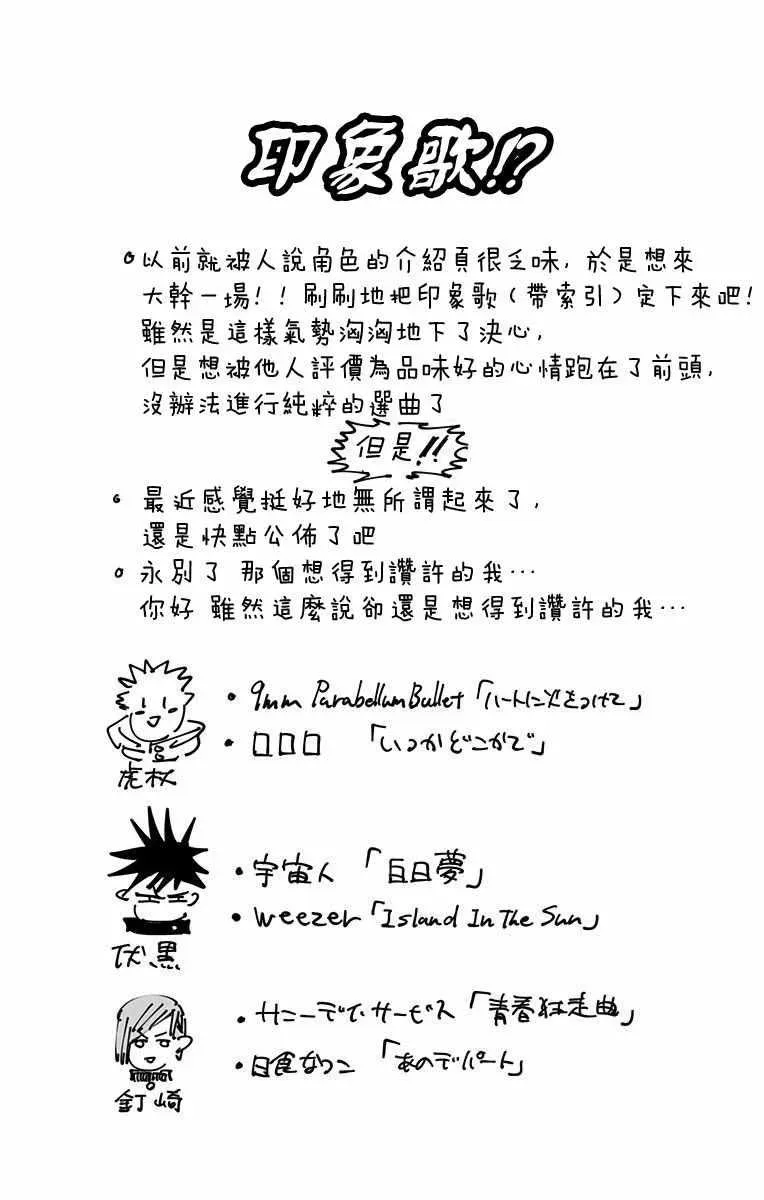 印象歌!?
以前就被人說角色的介紹頁很乏味,於是想來
大幹一場!!刷刷地把印象歌(帶索引)定下來吧!
雖然是這樣氣勢洶洶地下了決心,
但是想被他人評價為品味好的心情跑在了前頭,
沒辦法進行純粹的選曲了
但是!!
最近感覺挺好地無所謂起來了,
還是快點公佈了吧
永別了 那個想得到讚許的我…
你好 雖然這麼說卻還是想得到讚許的我…
・9mm Parabellum Bullet「ハートに火をつけて」
・口口口 「いつかどこかで」
虎杖
・宇宙人 「白日夢」
・weezer「Island In The Sun」
伏黒
・サニーデイ・サービス「青春狂走曲」
・日食なつこ「あのデパート」
釘崎